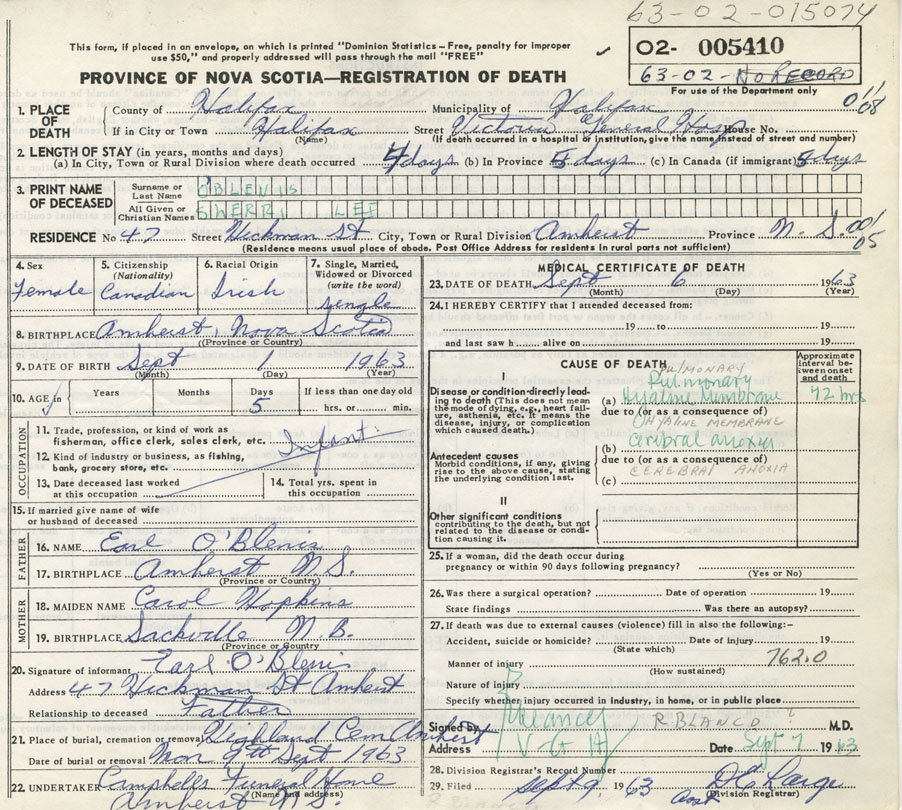 63-02-015074
This form, if placed in an envelope, on which is printed "Dominion Statistics—Free, penalty for improper
use $50," and properly addressed will pass through the mail "FREE"
O2- 005410
63-02-No RECORD
PROVINCE OF NOVA SCOTIA—REGISTRATION OF DEATH
For use of the Department only
1. PLACE OF DEATH County of Halifax Municipality of Halifax 01/08
If in City or Town Halifax Street Victoria General Hosp House No.
(Name) (If death occurred in a hospital or institution, give the name instead of street and number)
2. LENGTH OF STAY (in years, months and days)
(a) In City, Town or Rural Division where death occurred 4 days (b) In Province 5 days (c) In Canada (if immigrant) 5 days
3. PRINT NAME OF DECEASED Surname or Last Name O'BLENIS
All Given or Christian Names SHERRI LEE
RESIDENCE No. 47 Street Hickman St City, Town or Rural Division Amherst Province N. S. 00/05
(Residence means usual place of abode. Post Office Address for residents in rural parts not sufficient)
4. Sex
Female
5. Citizenship
(Nationality)
Canadian
6. Racial Origin
Irish
7. Single, Married,
Widowed or Divorced
(write the word)
single
8. BIRTHPLACE Amherst, Nova Scotia
(Province or Country)
9. DATE OF BIRTH Sept 1 1963
(Month) (Day) (Year)
10. AGE in Years Months Days If less than one day old
5 hrs. or min.
OCCUPATION
11. Trade, profession, or kind of work as
fisherman, office clerk, sales clerk, etc. Infant
12. Kind of industry or business, as fishing,
bank, grocery store, etc.
13. Date deceased last worked
at this occupation
14. Total yrs. spent in
this occupation
15. If married give name of wife
or husband of deceased
FATHER
16. NAME Earl O'Blenis
17. BIRTHPLACE Amherst N.S.
(Province or Country)
MOTHER
18. MAIDEN NAME Carol Hopkins
19. BIRTHPLACE Sackville N.B.
(Province or Country)
20. Signature of informant Earl O'Blenis
Address 47 Hickman St Amherst
Relationship to deceased Father
21. Place of burial, cremation or removal Highland Cem Amherst
Date of burial or removal Mon 9th Sept 1963
22. UNDERTAKER Campbells Funeral Home
(Name and address)
Amherst N.S.
MEDICAL CERTIFICATE OF DEATH
23. DATE OF DEATH Sept 6 1963
(Month) (Day) (Year)
24. I HEREBY CERTIFY that I attended deceased from:
19 to 19
and last saw h alive on 19
CAUSE OF DEATH
Approximate
interval between
onset
and death
I
Disease or condition directly leading
to death (This does not mean
the mode of dying, e.g., heart failure,
asthenia, etc. It means the
disease, injury, or complication
which caused death.)
PULMONARY
Pulmonary
(a) Hyaline Membrane 72 hrs
due to (or as a consequence of)
HYALINE MEMBRANE
Cerebral anoxia
Antecedent causes
Morbid conditions, if any, giving
rise to the above cause, stating
the underlying condition last.
(b)
due to (or as a consequence of)
CEREBRAL ANOXIA
(c)
II
Other significant conditions
contributing to the death, but not
related to the disease or condition
causing it.
25. If a woman, did the death occur during
pregnancy or within 90 days following pregnancy?
(Yes or No)
26. Was there a surgical operation? Date of operation 19
State findings Was there an autopsy?
27. If death was due to external causes (violence) fill in also the following:—
Accident, suicide or homicide? Date of injury 19
(State which)
762.0
Manner of injury
(How sustained)
Nature of injury
Specify whether injury occurred in industry, in home, or in public place
Signed by R BLANCO ? M.D.
Address V G H Date Sept 7 1963
28. Division Registrar's Record Number
29. Filed Sept 9 1963
(Division Registrar)